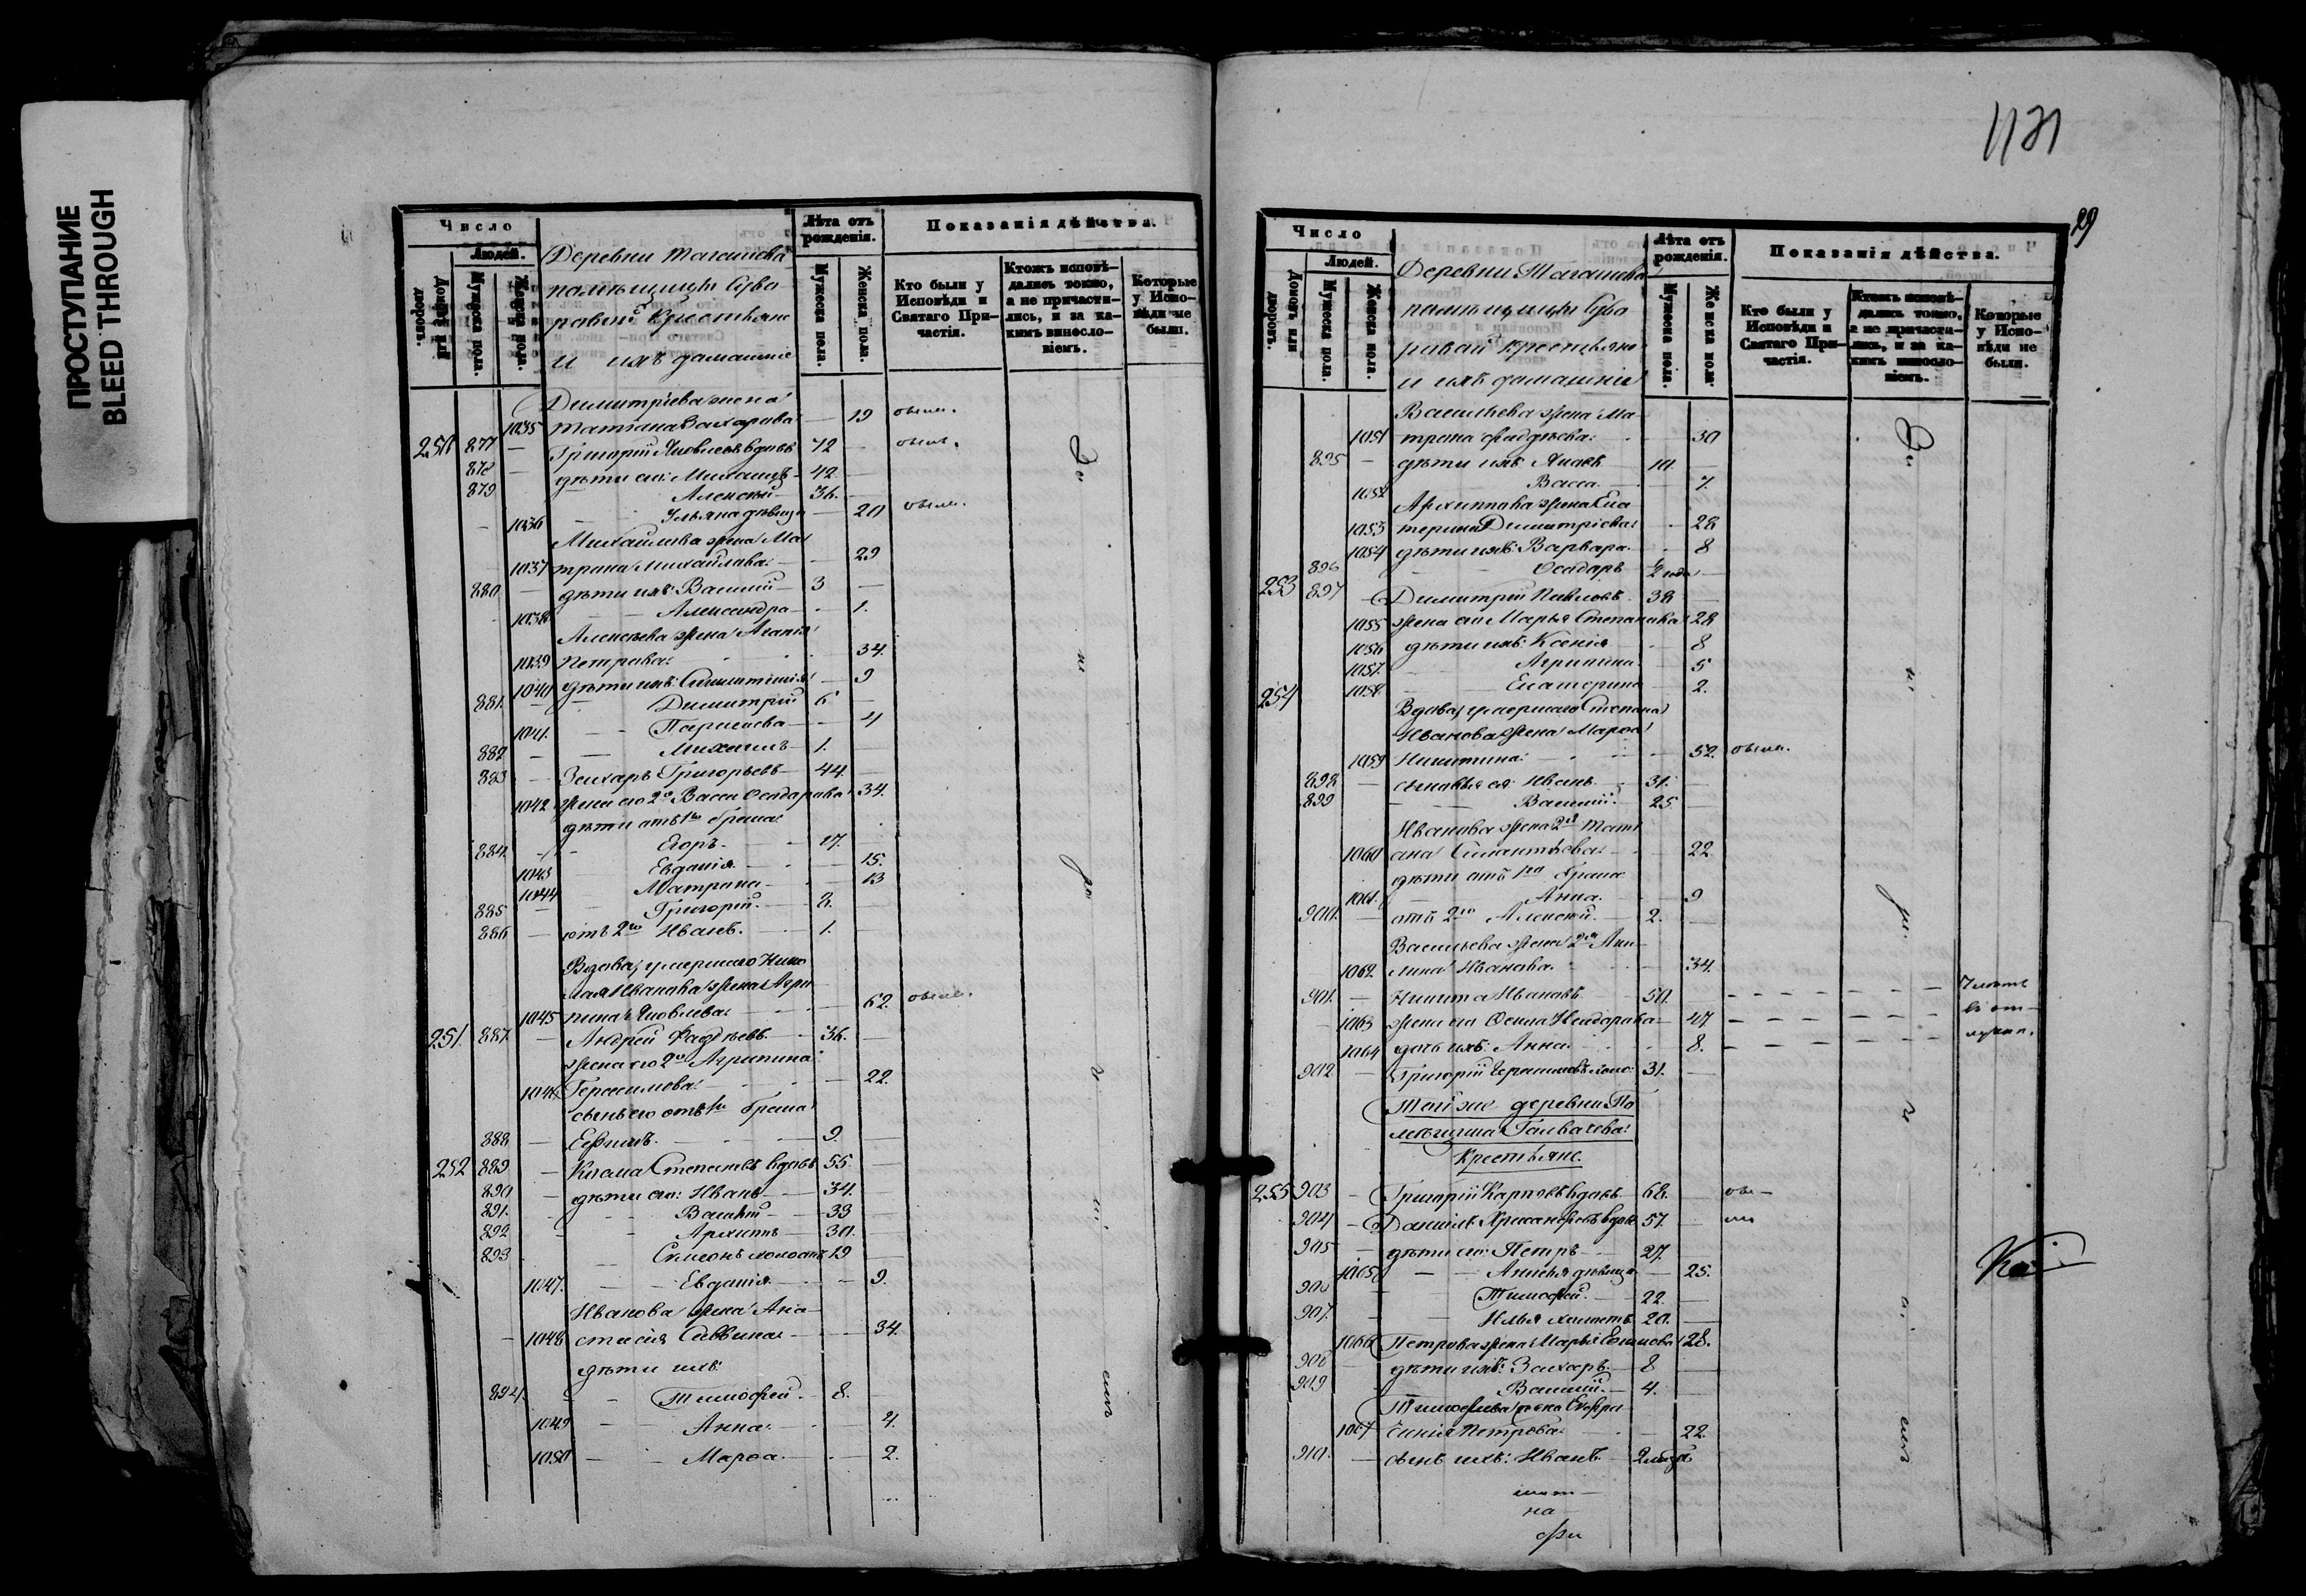 ПРОСТУПАНИЕ
BLEED THROUGH
1131
29
Число
Людей.
Домовъ или дворовъ.
Мужеска пола.
Женска пола.
Деревни Тагашова
помѣщицы Суво
ровой Крестьяне
и ихъ домашніе
Лѣта отъ рожденія.
Мужеска пола.
Женска пола.
Показанія дѣйства.
Кто были у Исповѣди и Святаго Причастія.
Ктожъ исповѣдались токмо, а не причастились, и за какимъ винословіемъ.
Которые у Исповѣди не были.
Димитріева жена
1035 Татіана Захарова — 19 были.
250 877 — Григорій Яковлевъ вдовъ 72 — были.
878 — дѣти его: Михаилъ — 42 —
879 Алексѣй — 36. —
1036 Ульяна дѣвица — 20 были.
Михайлова жена Ма
1037 трона Михайлова — 29
880 — дѣти ихъ: Василій — 3 —
1038 Александра — 1.
Алексѣева жена Агапія
1039 Петрова 34.
1040 дѣти ихъ: — 9
881. Димитрій 6 —
1041. — Парасковa — 4
882 — Михаилъ — 1. —
883 — Захаръ Григорьевъ — 44. —
1042 жена его 2я Васса Ѳедорова 34.
дѣти отъ 1го брака
884. — Егоръ — 17.
1043 Евдокія — 15.
1044 Матрона — 13
885 — Григорій. — 8. —
886 — отъ 2го Иванъ. — 1. —
Вдова, умершаго Нико
лая Иванова жена Агри
1045 пина Яковлева — 62. были.
251. 887. — Андрей Фадѣевъ — 36. —
жена его 2я Агрипина
1046 Герасимова — 22.
сынъ его отъ 1го брака
888 — Ефимъ. — 9. —
252 889 — Козма Степановъ вдовъ 55 —
890 — дѣти его: Иванъ — 34. —
891. Василій — 33 —
892 Архипъ — 30. —
893 Симеонъ холостъ 19 —
1047. — Евдокія — 9.
Иванова жена Ана
1048 стасія Саввина — 34.
дѣти ихъ:
894. — Тимофей — 8. —
1049 — Анна — 4.
1050 — Марѳа — 2.
Число
Людей.
Домовъ или дворовъ.
Мужеска пола.
Женска пола.
Деревни Тагашова
помѣщицы Суво
ровой крестьяне
и ихъ домашніе
Лѣта отъ рожденія.
Мужеска пола.
Женска пола.
Показанія дѣйства.
Кто были у Исповѣди и Святаго Причастія.
Ктожъ исповѣдались токмо, а не причастились, и за какимъ винословіемъ.
Которые у Исповѣди не были.
Васильева жена Ма
1051 трона Фадѣева — 30
895 — дѣти ихъ: Яковъ 10 —
1052 Васса — 7.
Архипова жена Ека
1053 терина Димитріева — 28
1054 дѣти ихъ: Варвара — 8
896 — Ѳедоръ ½ года —
253 897 — Димитрій Павловъ 38 —
1055 жена его Марья Степанова 28
1056 дѣти ихъ: Ксенія — 8
1057. — Агрипина — 5
1058. — Екатерина — 2.
254 Вдова, умершаго Степана
Иванова жена Марѳа
1059 Никитина — 52. были.
898 — сыновья ея: Иванъ — 31. —
899 — Василій. — 25 —
Иванова жена 2я Тати
1060 ана — 22
дѣти отъ 1го брака
1061. — Анна. — 9
900. — отъ 2го Алексѣй. — 2. —
Васильева жена 2я Аки
1062 лина Иванова — 34.
901. — Никита Ивановъ — 50. —
1063 жена его — 47
1064 дочь ихъ: Анна — 8.
902 — Григорій Герасимовъ холо: 31. —
Той же деревни По
мѣщика
Крестьяне.
255 903 — Григорій Карповъ вдовъ 68. — бы—
904 — Даніилъ вдов: 57. — ли
905 — дѣти его: Петръ — 27. —
1065 — дѣвица — 25.
906 — Тимофей. — 22. —
907. — Илья холостъ 20. —
1066 Петрова жена Марья Ефимова 28.
908 — дѣти ихъ: Захаръ — 8 —
909 — Василій — 4. —
Тимофеева жена Евфро
1067 синія Петрова — 22.
910. — сынъ ихъ: Иванъ —